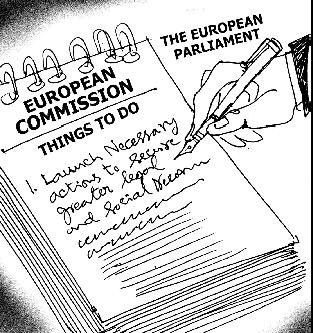 THE EUROPEAN
PARLIAMENT
EUROPEAN
COMMISSION
THINGS TO DO
1. Launch Necessary
actions to secure
greater legal
and Social